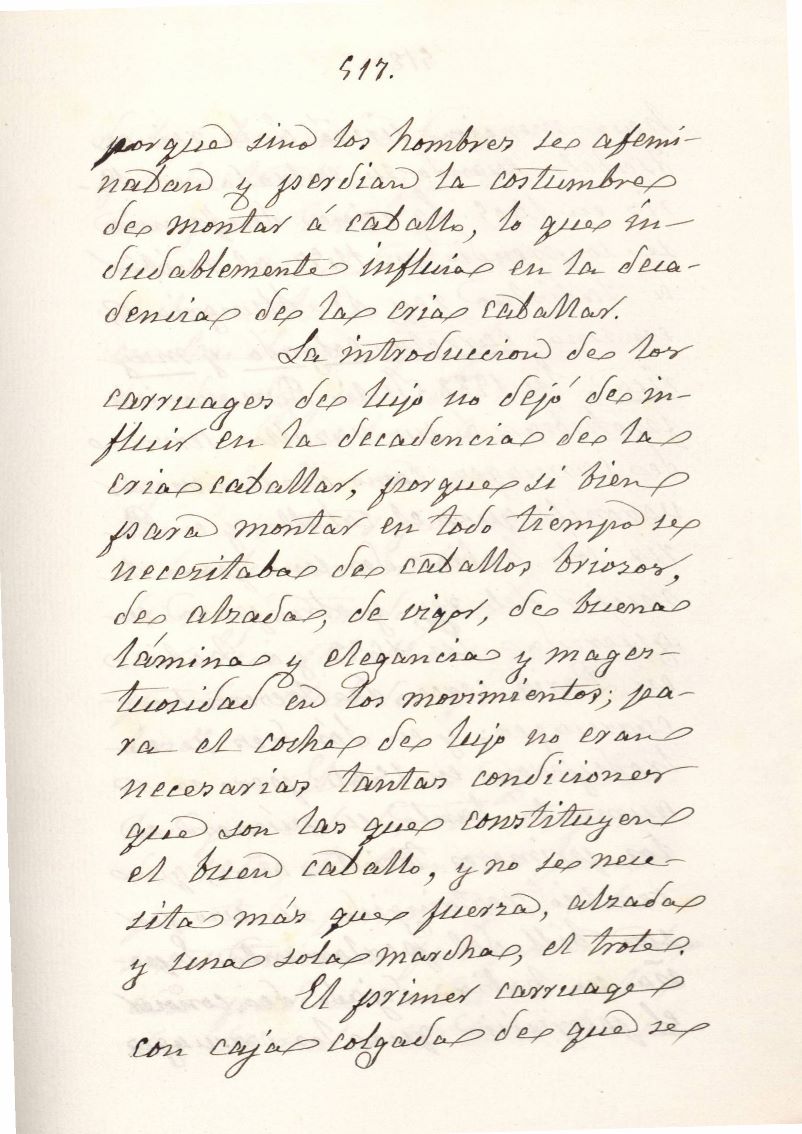 517.
porque sino los hombres se afemi-
naban y perdian la costumbre
de montar á caballo, lo que in-
dudablemente influia en la deca-
dencia de la cria caballar.
La introduccion de los
carruages de lujo no dejó de in-
fluir en la decadencia de la
cria caballar, porque si bien
para montar en todo tiempo se
necesitaba de caballos briosos,
de alzada, de vigor, de buena
lámina y elegancia y mages-
tuosidad en los movimientos; pa-
ra el coche de lujo no eran
necesarias tantas condiciones
que son las que constituyen
el buen caballo, y no se nece-
sita más que fuerza, alzada
y una sola marcha, el trote.
El primer carruage
con caja colgada de que se